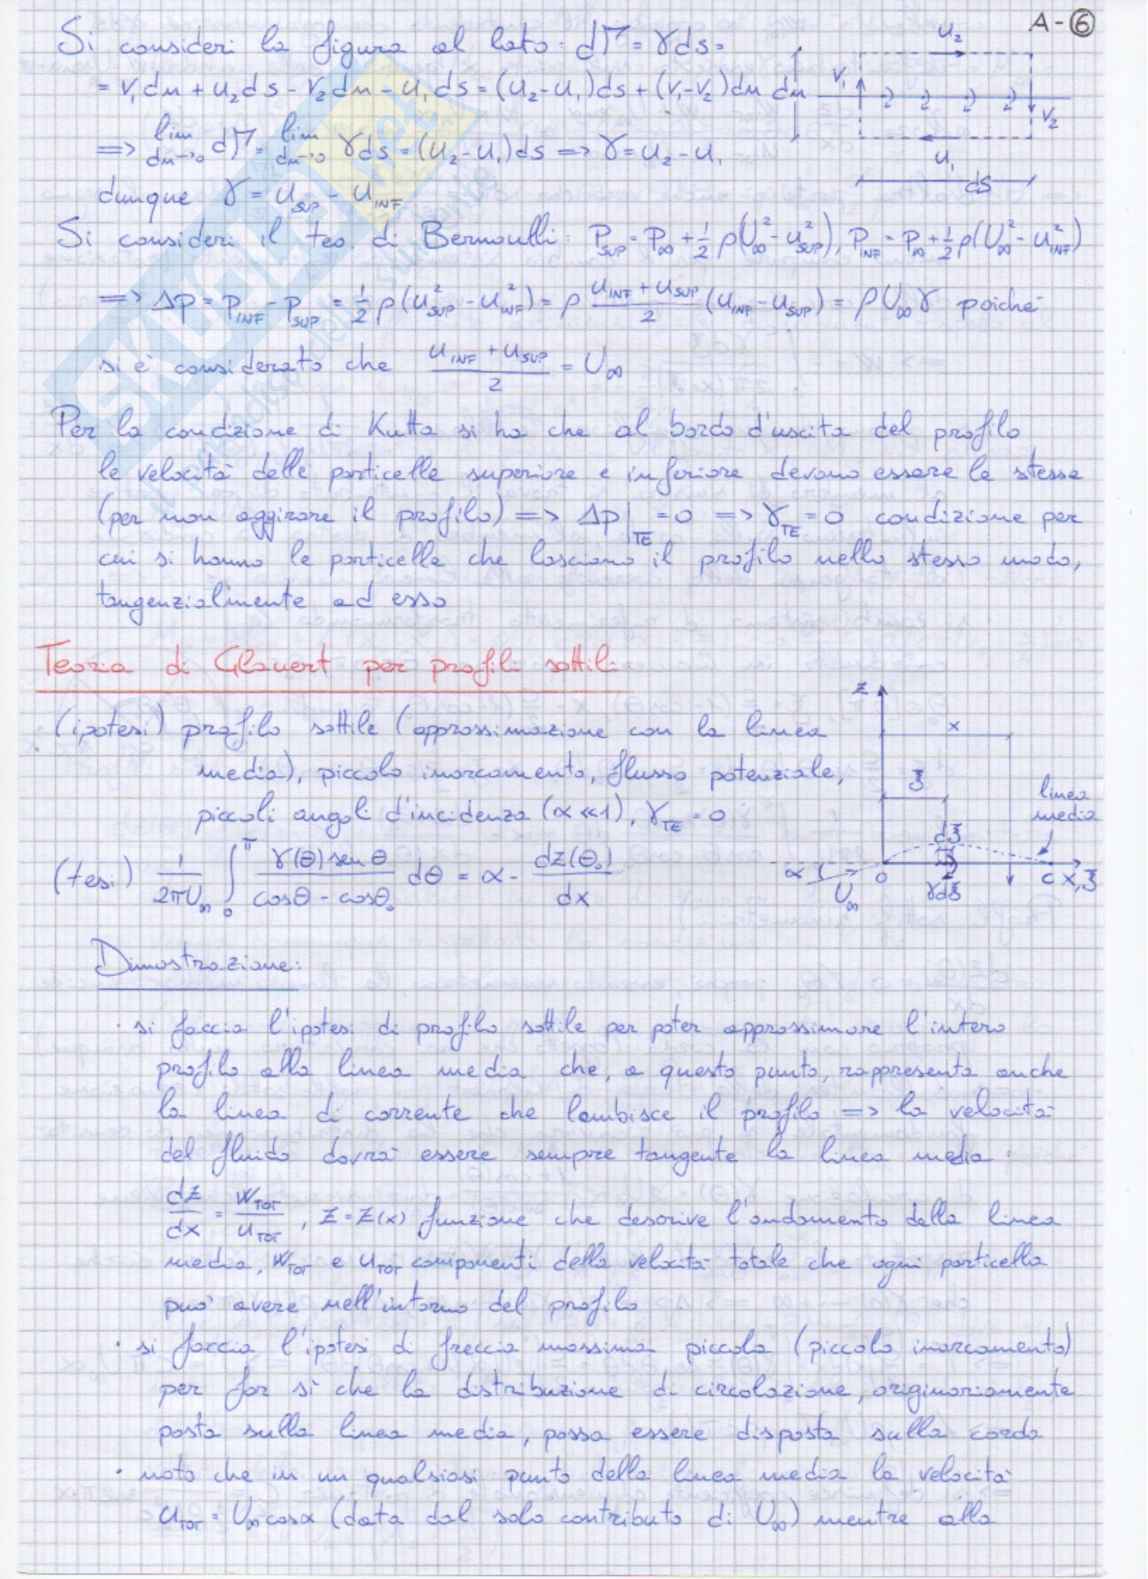 A-6
Si consideri la figura al lato: dΓ = γds =
= V₁dn + u₂ds - V₂dn - u₁ds = (u₂-u₁)ds + (V₁-V₂)dn
=> lim dn→0 dΓ = lim dn→0 γds = (u₂-u₁)ds => γ = u₂-u₁
dunque γ = u_SUP - u_INF
u₂
dn V₁ V₂
u₁
ds
Si consideri il teo. di Bernoulli: P_SUP = P_∞ + 1/2 ρ(U_∞² - u_SUP²), P_INF = P_∞ + 1/2 ρ(U_∞² - u_INF²)
=> Δp = P_INF - P_SUP = 1/2 ρ(u_SUP² - u_INF²) = ρ (u_INF + u_SUP)/2 (u_INF - u_SUP) = ρU_∞γ poiché
si è considerato che (u_INF + u_SUP)/2 = U_∞
Per la condizione di Kutta si ha che al bordo d'uscita del profilo
le velocità delle particelle superiore e inferiore devono essere le stesse
(per non aggirare il profilo) => Δp|_TE = 0 => γ_TE = 0 condizione per
cui si hanno le particelle che lasciano il profilo nello stesso modo,
tangenzialmente ad esso
Teoria di Glauert per profili sottili:
(ipotesi) profilo sottile (approssimazione con la linea
media), piccolo inarcamento, flusso potenziale,
piccoli angoli d'incidenza (α<<1), γ_TE = 0
(tesi) 1/(2πU_∞) ∫₀^π γ(θ) sen θ/(cosθ - cosθ₀) dθ = α - dz(θ₀)/dx
z
x
ξ
linea
media
dξ
α U_∞ 0 γdξ c x,ξ
Dimostrazione:
· si faccia l'ipotesi di profilo sottile per poter approssimare l'intero
profilo alla linea media che, a questo punto, rappresenta anche
la linea di corrente che lambisce il profilo => la velocità
del fluido dovrà essere sempre tangente la linea media:
dz/dx = W_TOT/u_TOT, z=z(x) funzione che descrive l'andamento della linea
media, W_TOT e u_TOT componenti della velocità totale che ogni particella
può avere nell'intorno del profilo
· si faccia l'ipotesi di freccia massima piccola (piccolo inarcamento)
per far sì che la distribuzione di circolazione, originariamente
posta sulla linea media, possa essere disposta sulla corda
· noto che in un qualsiasi punto della linea media la velocità
u_TOT = U_∞cosα (data dal solo contributo di U_∞) mentre alla